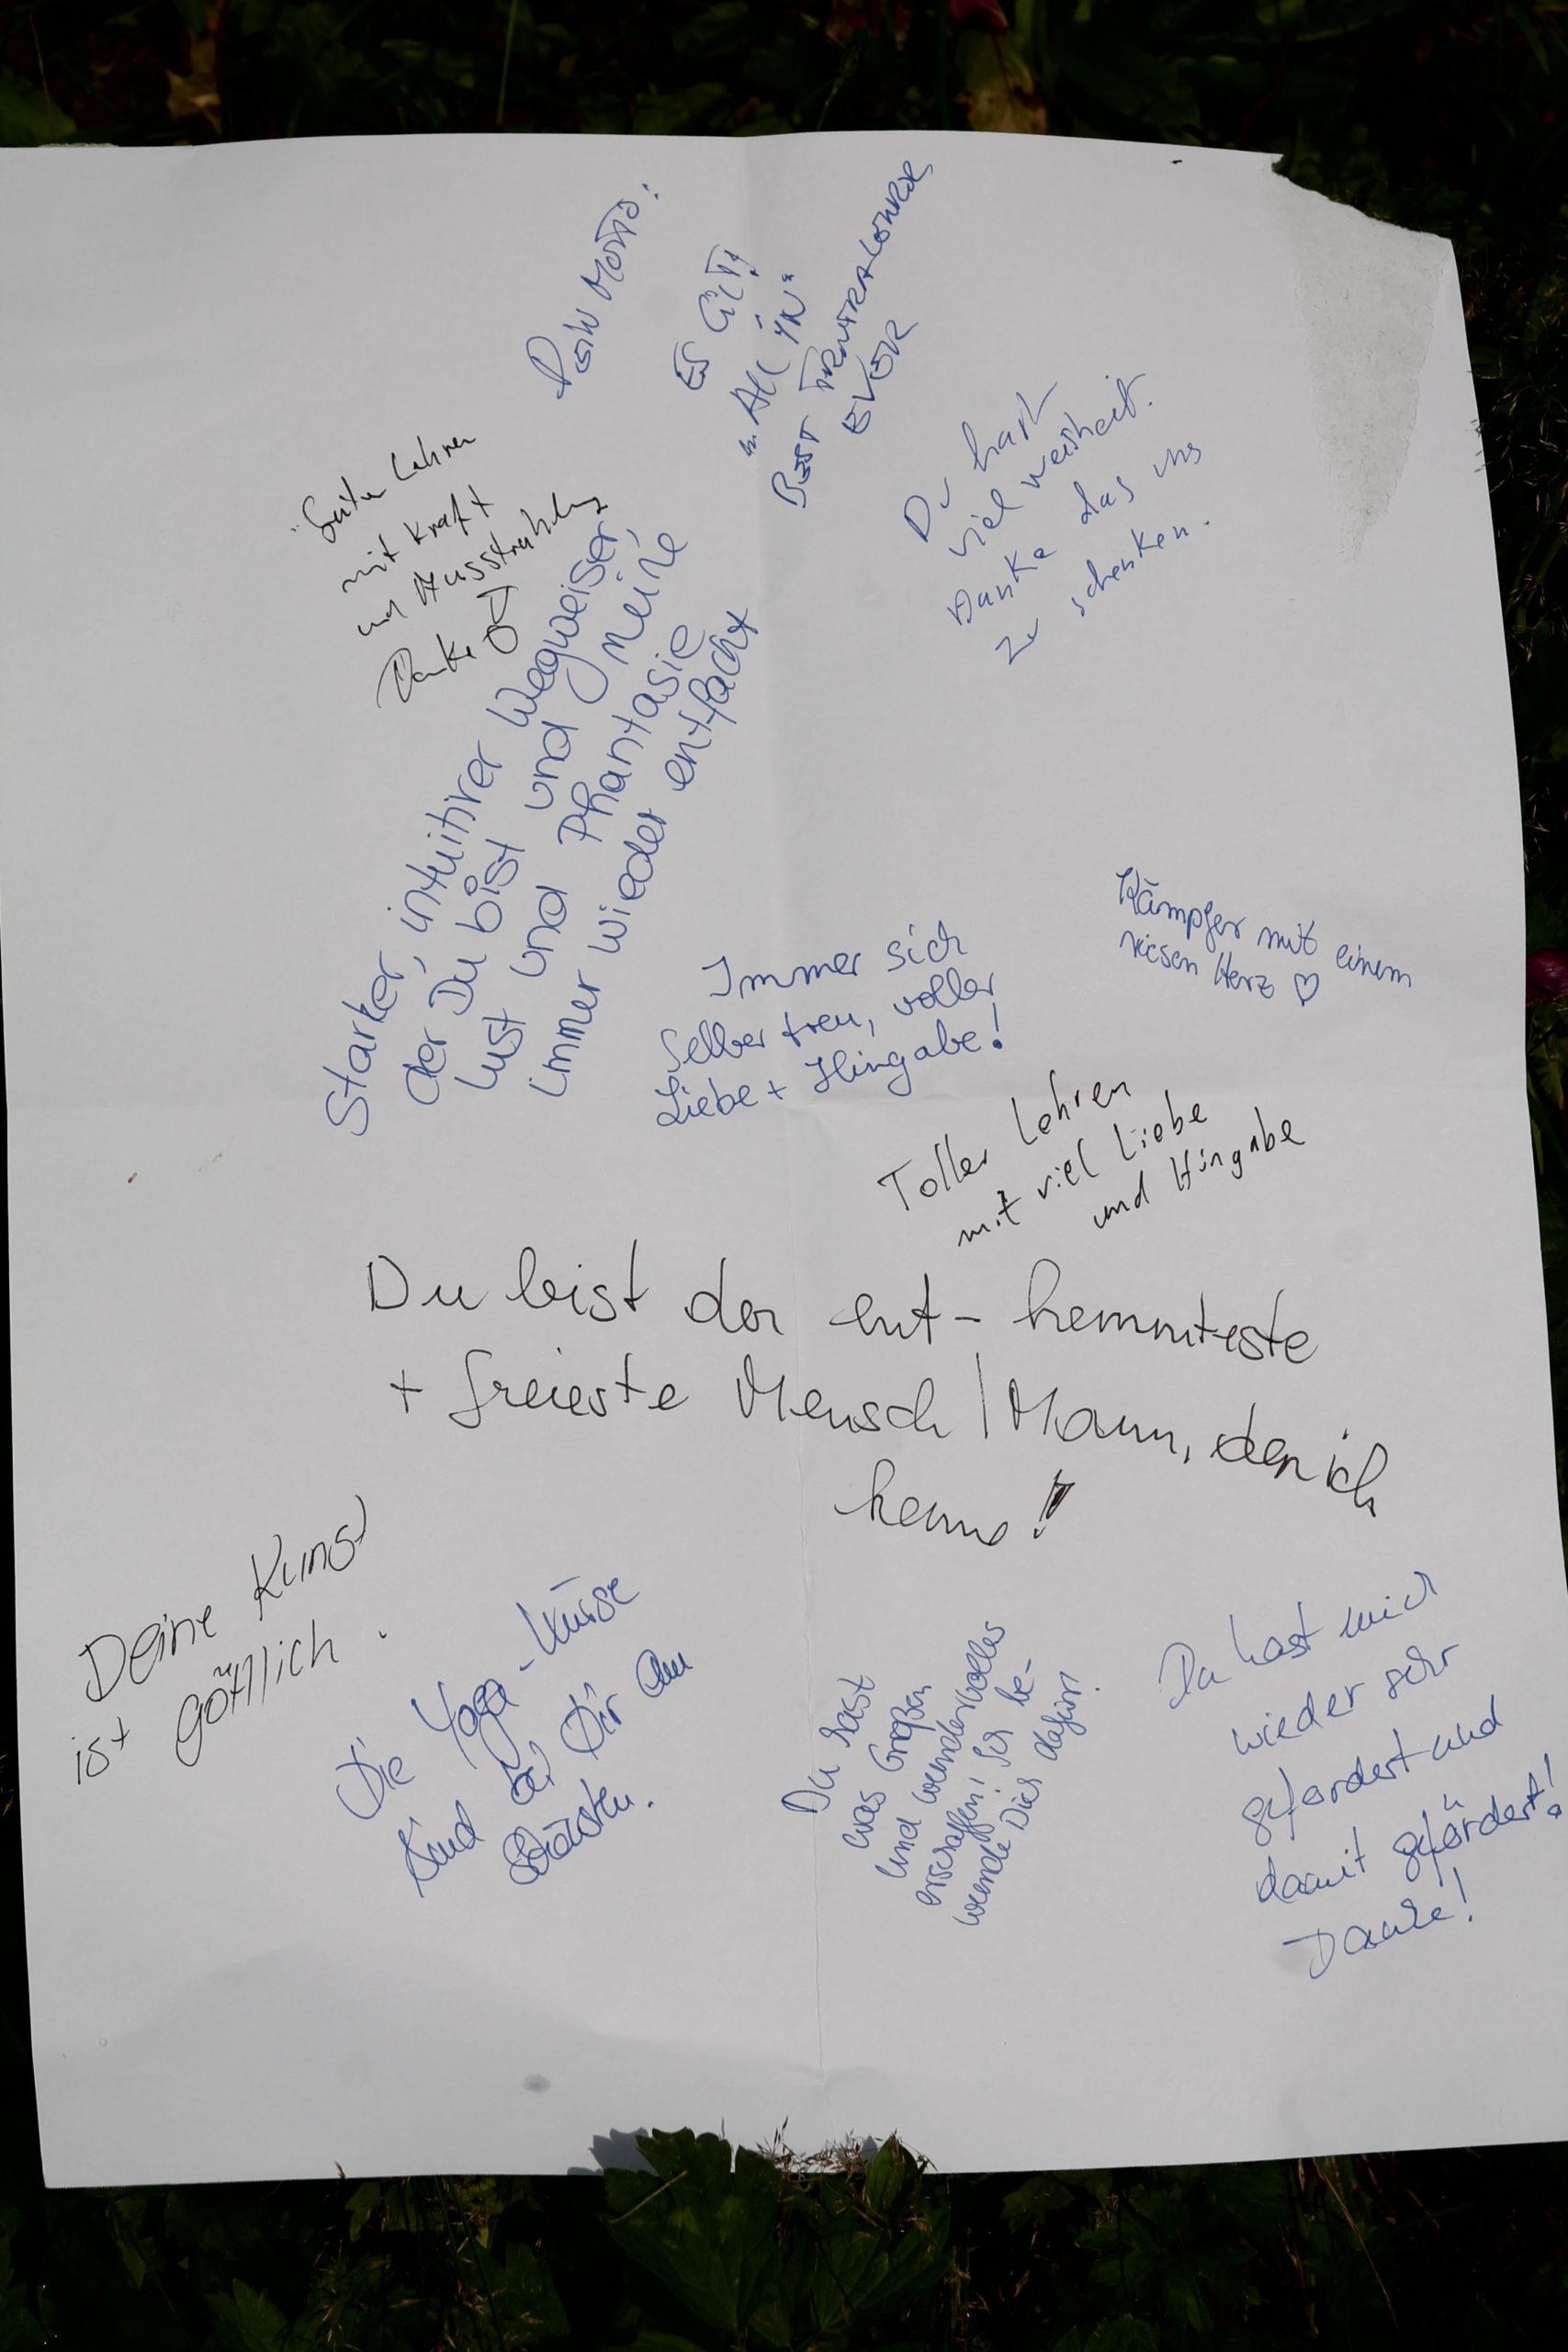 Dein Motto:
Es Gilt!
"All in"
Best Tantralehrer
Ever
Guter Lehrer
mit Kraft
und Ausstrahlung
Danke
Du hast
viel weisheit.
Danke das uns
zu schenken.
Starker, intuitiver Wegweiser,
der Du bist und meine
Lust und Phantasie
immer wieder entfacht
Kämpfer mit einem
riesen Herz ♡
Immer sich
selber treu, voller
Liebe + Hingabe!
Toller Lehrer
mit viel Liebe
und Hingabe
Du bist der ent-hemmteste
+ freieste Mensch / Mann, den ich
kenne!
Deine Kunst
ist göttlich.
Die Yoga-Kurse
sind bei Dir am
Du hast
was Großes
und wundervolles
erschaffen! Ich be-
wunde Dich dafür!
Du hast mich
wieder sehr
gefordert und
damit gefördert!
Danke!